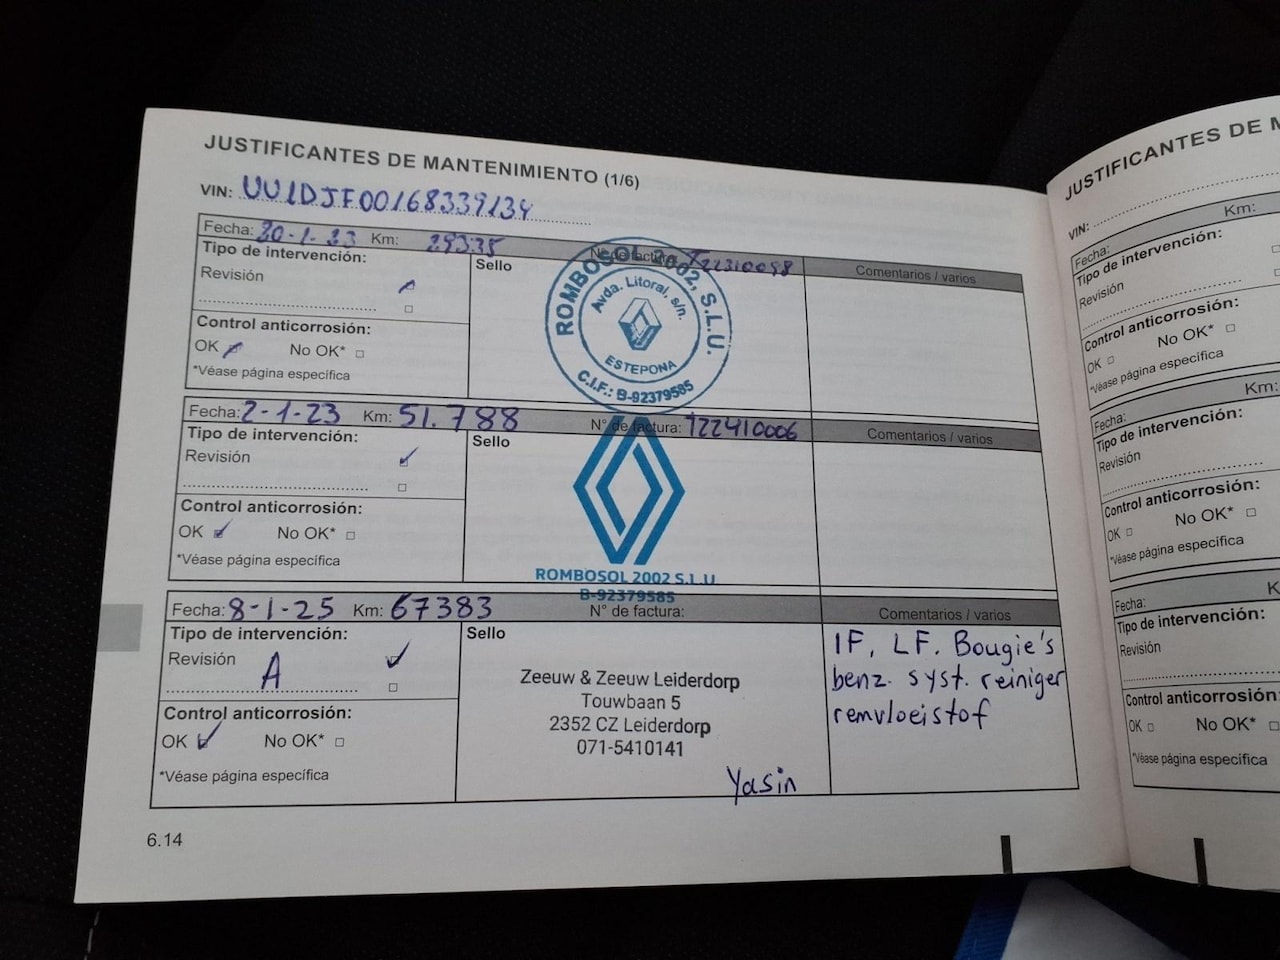 JUSTIFICANTES DE MANTENIMIENTO (1/6)
VIN: UU1DJF00168339134
Fecha: 20-1-23 Km: 29335 N° de factura: T22310098 Comentarios / varios
Tipo de intervención:
Sello
Revisión
Control anticorrosión:
OK No OK*
*Véase página específica
ROMBOSOL 2002, S.L.U.
Avda. Litoral, s/n.
ESTEPONA
C.I.F.: B-92379585
Fecha: 2-1-23 Km: 51.788 N° de factura: T22410006 Comentarios / varios
Tipo de intervención:
Sello
Revisión
Control anticorrosión:
OK No OK*
*Véase página específica
ROMBOSOL 2002 S.L.U.
B-92379585
Fecha: 8-1-25 Km: 67383 N° de factura: Comentarios / varios
Tipo de intervención:
Sello
Revisión A
Control anticorrosión:
OK No OK*
*Véase página específica
Zeeuw & Zeeuw Leiderdorp
Touwbaan 5
2352 CZ Leiderdorp
071-5410141
Yasin
IF, LF. Bougie's
benz. syst. reiniger
remvloeistof
6.14
JUSTIFICANTES DE M
VIN:
Fecha: Km:
Tipo de intervención:
Revisión
Control anticorrosión:
OK No OK*
*Véase página específica
Fecha: Km:
Tipo de intervención:
Revisión
Control anticorrosión:
OK No OK*
*Véase página específica
Fecha: K
Tipo de intervención:
Revisión
Control anticorrosión:
OK No OK*
*Véase página específica